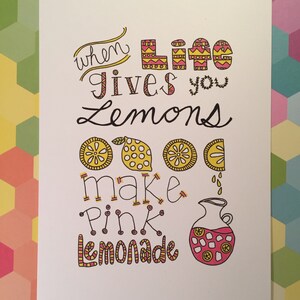 when Life
gives you
Lemons
make
pink
Lemonade